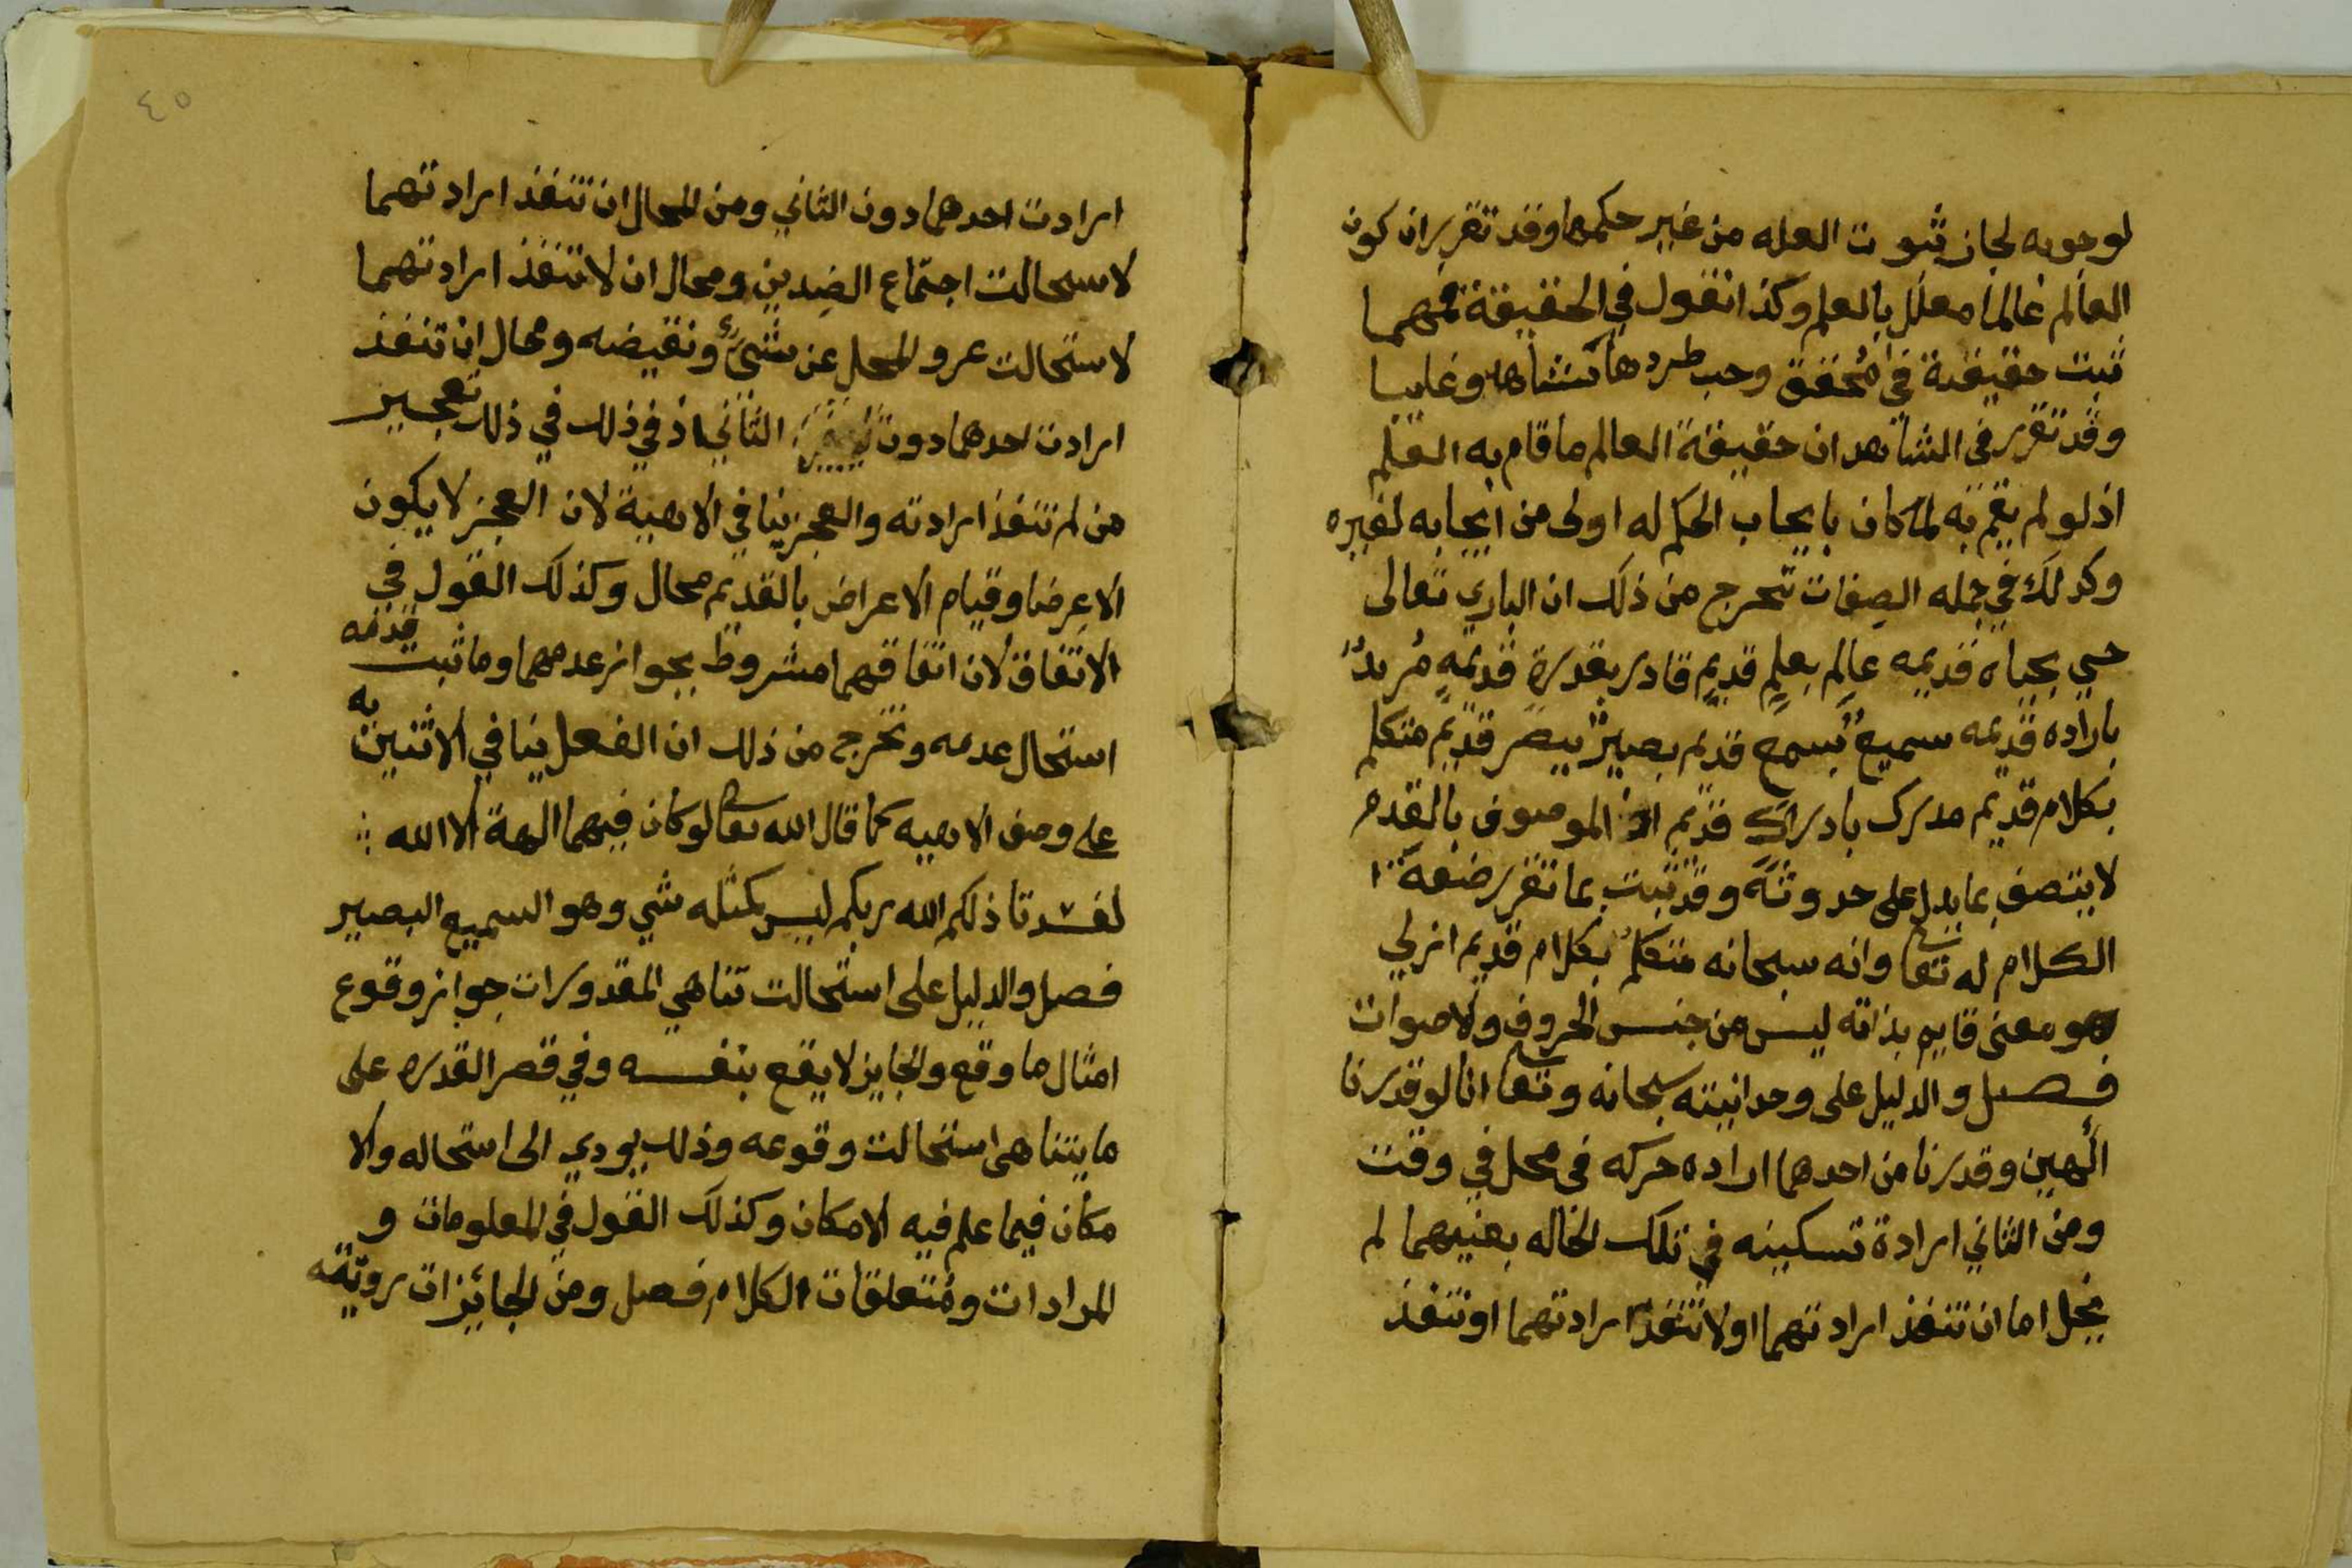 لوجوبه لجاز ثبوت العله من غير حكمها وقد تقرر ان كون
العالم عالما معلل بالعلم وكذا نقول في الحقيقة فمهما
ثبتت حقيقة في محقق وجب طردها شاهدا وغايبا
وقد تقرر في الشاهد ان حقيقة العالم ما قام به العلم
اذ لو لم يقم به لما كان بايجاب الحكم له اولى من ايجابه لغيره
وكذلك في جمله الصفات تخرج من ذلك ان الباري تعالى
حي بحياه قديمه عالم بعلم قديم قادر بقدرة قديمه مريدٌ
باراده قديمه سميع بسمع قديم بصيرٌ ببصر قديم متكلم
بكلام قديم مدرك بادراك قديم اذ الموصوف بالقدم
لا يتصف بما يدل على حدوثه وقد ثبت بما تقرر صفة
الكلام له تعا وانه سبحانه متكلمٌ بكلام قديم ازلي
وهو معنى قايم بذاته ليس من جنس الحروف ولاصوات
فصل والدليل على وحدانيته سبحانه وتعا انا لو قدرنا
الهين وقدرنا من احدهما اراده حركه في محل في وقت
ومن الثاني ارادة تسكينه في تلك الحاله بعنيهما لم
يخل اما ان تنفذ ارادتهما او لا تنفذ ارادتهما او تنفذ
٤٥
ارادت احدهما دون الثاني ومن المحال ان تنفذ ارادتهما
لاسحالت اجتماع الضدين ومحال ان لا تنفذ ارادتهما
لاستحالت عرو المحل عن شيء ونقيضه ومحال ان تنفذ
ارادت احدهما دون الثاني اذ في ذلك في ذلك تعجيز
من لم تنفذ ارادته والعجز ينافي الالهية لان العجز لا يكون
الا عرضا وقيام الاعراض بالقديم محال وكذلك القول في
الاتفاق لان اتفاقهما مشروط بجواز عدمهما وما ثبت قدمه
استحال عدمه وتخرج من ذلك ان الفعل ينافي الاثنين به
على وصف الالهيه كما قال الله تعا لو كان فيهما الهة الا الله
لفسدتا ذلكم الله ربكم ليس كمثله شي وهو السميع البصير
فصل والدليل على استحالت تناهي المقدورات جواز وقوع
امثال ما وقع والجايز لا يقع بنفسه وفي قصر القدره على
ما يتناهى استحالت وقوعه وذلك يودي الى استحاله والا
مكان فيما علم فيه الامكان وكذلك القول في المعلومات و
المرادات ومتعلقات الكلام فصل ومن الجائزات رويته